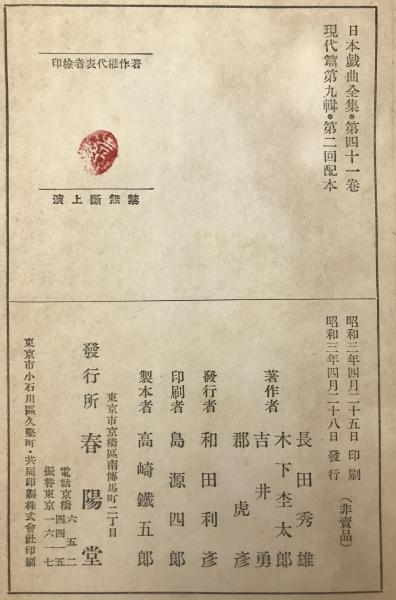 日本戯曲全集・第四十一卷
現代篇第九輯・第二回配本
著作權代表者檢印
禁無斷上演
昭和三年四月二十五日印刷
昭和三年四月二十八日發行
(非賣品)
著作者
長田秀雄
木下杢太郎
吉井勇
郡虎彥
發行者 和田利彥
印刷者 島源四郎
製本者 高崎鐵五郎
東京市京橋區南傳馬町二丁目
發行所 春陽堂
電話京橋
振替東京一六一七
東京市小石川區久堅町・共同印刷株式會社印刷